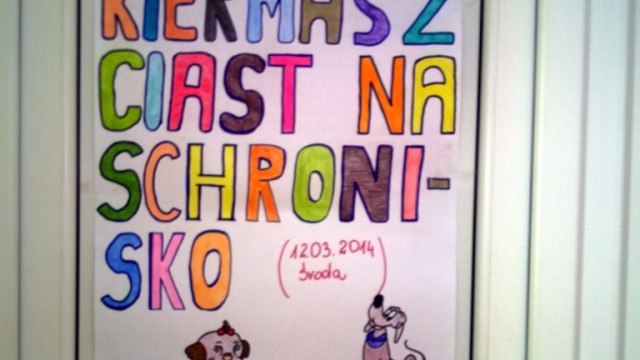 KIERMASZ
CIAST NA
SCHRONI-
SKO
(12.03.2014)
środa